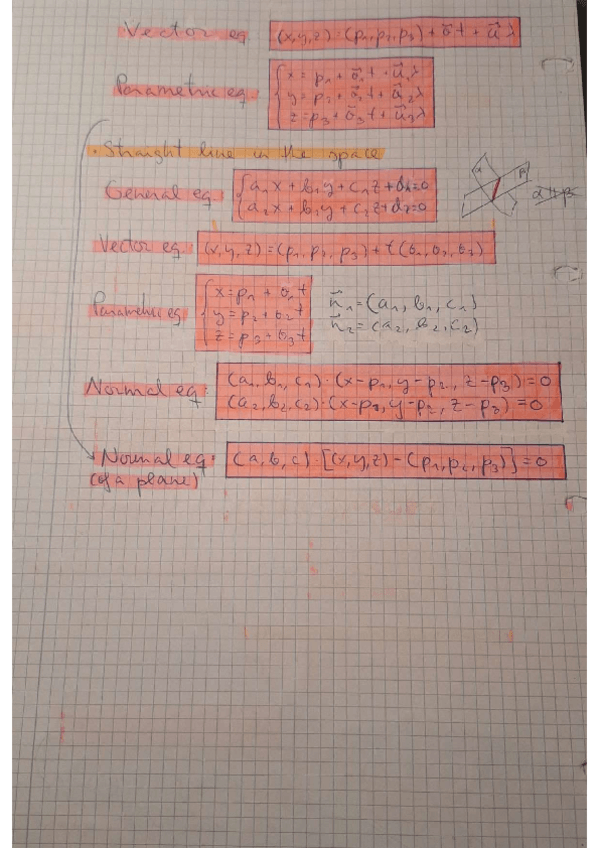 Vector eq (x,y,z) = (p₁,p₂,p₃) + v⃗t + u⃗λ
Parametric eq { x = p₁ + v⃗₁t + u⃗₁λ
y = p₂ + v⃗₂t + u⃗₂λ
z = p₃ + v⃗₃t + u⃗₃λ
· Straight line in the space
General eq { a₁x + b₁y + c₁z + d₁=0
a₂x + b₂y + c₂z + d₂=0
α β
Vector eq (x,y,z) = (p₁,p₂,p₃) + t(v₁,v₂,v₃)
Parametric eq { x = p₁ + v₁t
y = p₂ + v₂t
z = p₃ + v₃t
n⃗₁ = (a₁, b₁, c₁)
n⃗₂ = (a₂, b₂, c₂)
Normal eq: (a₁,b₁,c₁)·(x-p₁, y-p₂, z-p₃) = 0
(a₂,b₂,c₂)·(x-p₁, y-p₂, z-p₃) = 0
Normal eq: (a,b,c)·[(x,y,z) - (p₁,p₂,p₃)] = 0
(of a plane)